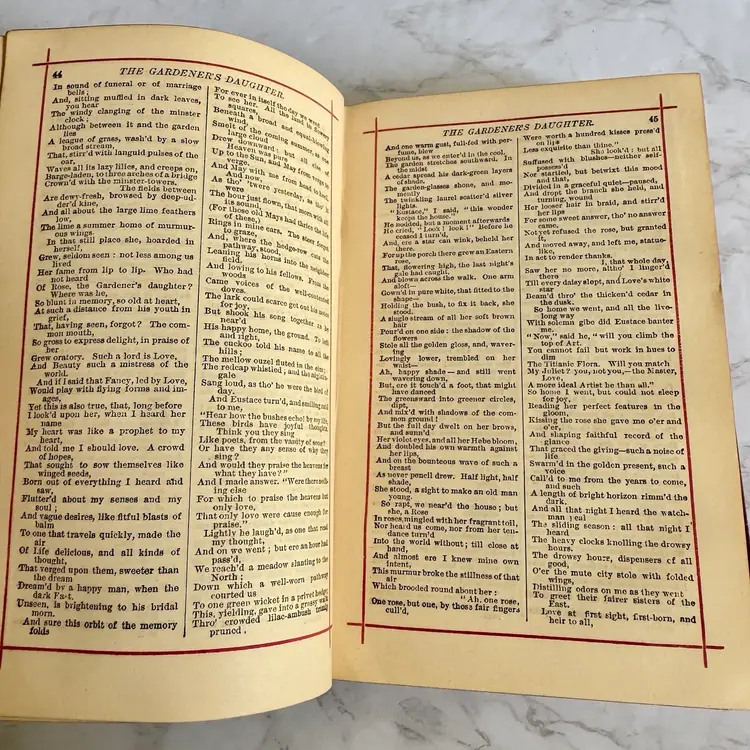 44
THE GARDENER'S DAUGHTER.
In sound of funeral or of marriage
bells;
And, sitting muffled in dark leaves,
you hear
The windy clanging of the minster
clock;
Although between it and the garden
lies
A league of grass, wash'd by a slow
broad stream,
That, stirr'd with languid pulses of the
oar,
Waves all its lazy lilies, and creeps on,
Barge-laden, to three arches of a bridge
Crown'd with the minster-towers.
The fields between
Are dewy-fresh, browsed by deep-ud-
der'd kine,
And all about the large lime feathers
low,
The lime a summer home of murmur-
ous wings.
In that still place she, hoarded in
herself,
Grew, seldom seen: not less among us
lived
Her fame from lip to lip. Who had
not heard
Of Rose, the Gardener's daughter?
Where was he,
So blunt in memory, so old at heart,
At such a distance from his youth in
grief,
That, having seen, forgot? The com-
mon mouth,
So gross to express delight, in praise of
her
Grew oratory. Such a lord is Love,
And Beauty such a mistress of the
world.
And if I said that Fancy, led by Love,
Would play with flying forms and im-
ages,
Yet this is also true, that, long before
I look'd upon her, when I heard her
name
My heart was like a prophet to my
heart,
And told me I should love. A crowd
of hopes,
That sought to sow themselves like
winged seeds,
Born out of everything I heard and
saw,
Flutter'd about my senses and my
soul;
And vague desires, like fitful blasts of
balm
To one that travels quickly, made the
air
Of Life delicious, and all kinds of
thought,
That verged upon them, sweeter than
the dream
Dream'd by a happy man, when the
dark East,
Unseen, is brightening to his bridal
morn.
And sure this orbit of the memory
folds
For ever in itself the day we went
To see her. All the land in flowery
squares,
Beneath a broad and equal-blowing
wind,
Smelt of the coming summer, as one
large cloud
Drew downward: but all else of
Heaven was pure
Up to the Sun, and May from verge to
verge,
And May with me from head to heel.
And now,
As tho' 'twere yesterday, as tho' it
were
The hour just flown, that morn with all
its sound,
(For those old Mays had thrice the life
of these,)
Rings in mine ears. The steer forgot
to graze,
And, where the hedge-row cuts the
pathway, stood,
Leaning his horns into the neighbor
field,
And lowing to his fellows. From the
woods
Came voices of the well-contented
doves.
The lark could scarce get out his notes
for joy,
But shook his song together as he
near'd
His happy home, the ground. To left
and right,
The cuckoo told his name to all the
hills;
The mellow ouzel fluted in the elm;
The redcap whistled; and the nightin-
gale
Sang loud, as tho' he were the bird of
day.
And Eustace turn'd, and smiling said
to me,
"Hear how the bushes echo! by my life,
These birds have joyful thoughts.
Think you they sing
Like poets, from the vanity of song?
Or have they any sense of why they
sing?
And would they praise the heavens for
what they have?"
And I made answer. "Were there noth-
ing else
For which to praise the heavens but
only love,
That only love were cause enough for
praise."
Lightly he laugh'd, as one that read
my thought,
And on we went; but ere an hour had
pass'd,
We reach'd a meadow slanting to the
North;
Down which a well-worn pathway
courted us
To one green wicket in a privet hedge;
This, yielding, gave into a grassy walk
Thro' crowded lilac-ambush trimly
pruned;
THE GARDENER'S DAUGHTER.
45
And one warm gust, full-fed with per-
fume, blew
Beyond us, as we enter'd in the cool.
The garden stretches southward. In
the midst
A cedar spread his dark-green layers
of shade.
The garden-glasses shone, and mo-
mently
The twinkling laurel scatter'd silver
lights.
"Eustace," I said, "this wonder
keeps the house."
He nodded, but a moment afterwards
He cried, "Look! look!" Before he
ceased I turn'd,
And, ere a star can wink, beheld her
there.
For up the porch there grew an Eastern
rose,
That, flowering high, the last night's
gale had caught,
And blown across the walk. One arm
aloft—
Gown'd in pure white, that fitted to the
shape—
Holding the bush, to fix it back, she
stood.
A single stream of all her soft brown
hair
Pour'd on one side: the shadow of the
flowers
Stole all the golden gloss, and, waver-
ing
Lovingly lower, trembled on her
waist—
Ah, happy shade—and still went
wavering down,
But, ere it touch'd a foot, that might
have danced
The greensward into greener circles,
dipt,
And mix'd with shadows of the com-
mon ground!
But the full day dwelt on her brows,
and sunn'd
Her violet eyes, and all her Hebe bloom,
And doubled his own warmth against
her lips,
And on the bounteous wave of such a
breast
As never pencil drew. Half light, half
shade,
She stood, a sight to make an old man
young.
So rapt, we near'd the house; but
she, a Rose
In roses, mingled with her fragrant toil,
Nor heard us come, nor from her ten-
dance turn'd
Into the world without; till close at
hand,
And almost ere I knew mine own
intent,
This murmur broke the stillness of that
air
Which brooded round about her:
"Ah, one rose,
One rose, but one, by those fair fingers
cull'd,
Were worth a hundred kisses press'd
on lips
Less exquisite than thine."
She look'd: but all
Suffused with blushes—neither self-
possess'd
Nor startled, but betwixt this mood
and that,
Divided in a graceful quiet—paused,
And dropt the branch she held, and
turning, wound
Her looser hair in braid, and stirr'd
her lips
For some sweet answer, tho' no answer
came,
Not yet refused the rose, but granted
it,
And moved away, and left me, statue-
like,
In act to render thanks.
I, that whole day,
Saw her no more, altho' I linger'd
there
Till every daisy slept, and Love's white
star
Beam'd thro' the thicken'd cedar in
the dusk.
So home we went, and all the live-
long way
With solemn gibe did Eustace banter
me.
"Now," said he, "will you climb the
top of Art.
You cannot fail but work in hues to
dim
The Titianic Flora. Will you match
My Juliet? you, not you,—the Master,
Love,
A more ideal Artist he than all."
So home I went, but could not sleep
for joy,
Reading her perfect features in the
gloom,
Kissing the rose she gave me o'er and
o'er,
And shaping faithful record of the
glance
That graced the giving—such a noise of
life
Swarm'd in the golden present, such a
voice
Call'd to me from the years to come,
and such
A length of bright horizon rimm'd the
dark.
And all that night I heard the watch-
man peal
The sliding season: all that night I
heard
The heavy clocks knolling the drowsy
hours.
The drowsy hours, dispensers of all
good,
O'er the mute city stole with folded
wings,
Distilling odors on me as they went
To greet their fairer sisters of the
East.
Love at first sight, first-born, and
heir to all,